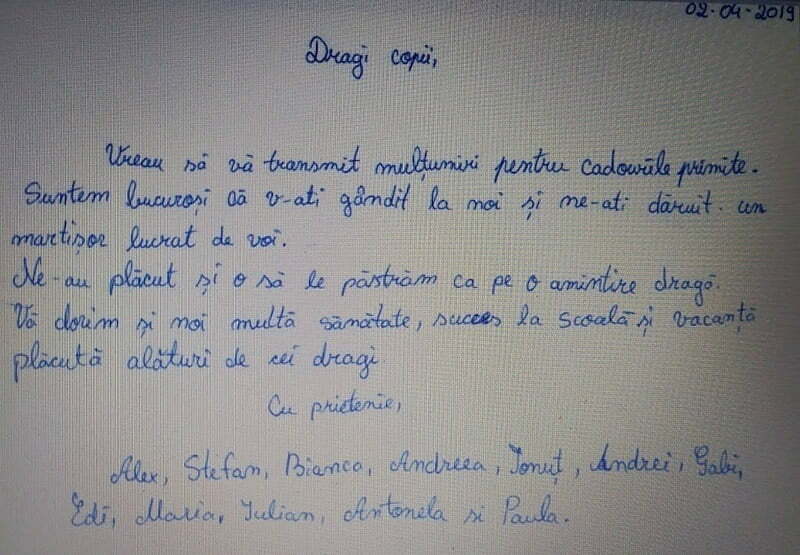 02-04-2019
Dragi copii,
Vreau să vă transmit mulțumiri pentru cadourile primite.
Suntem bucuroși că v-ati gândit la noi și ne-ati dăruit un
martișor lucrat de voi.
Ne-au plăcut și o să le păstrăm ca pe o amintire dragă.
Vă dorim și noi multă sănătate, succes la scoală și vacanță
plăcută alături de cei dragi
Cu prietenie,
Alex, Stefan, Bianca, Andreea, Ionuț, Andrei, Gabi,
Edi, Maria, Iulian, Antonela si Paula.